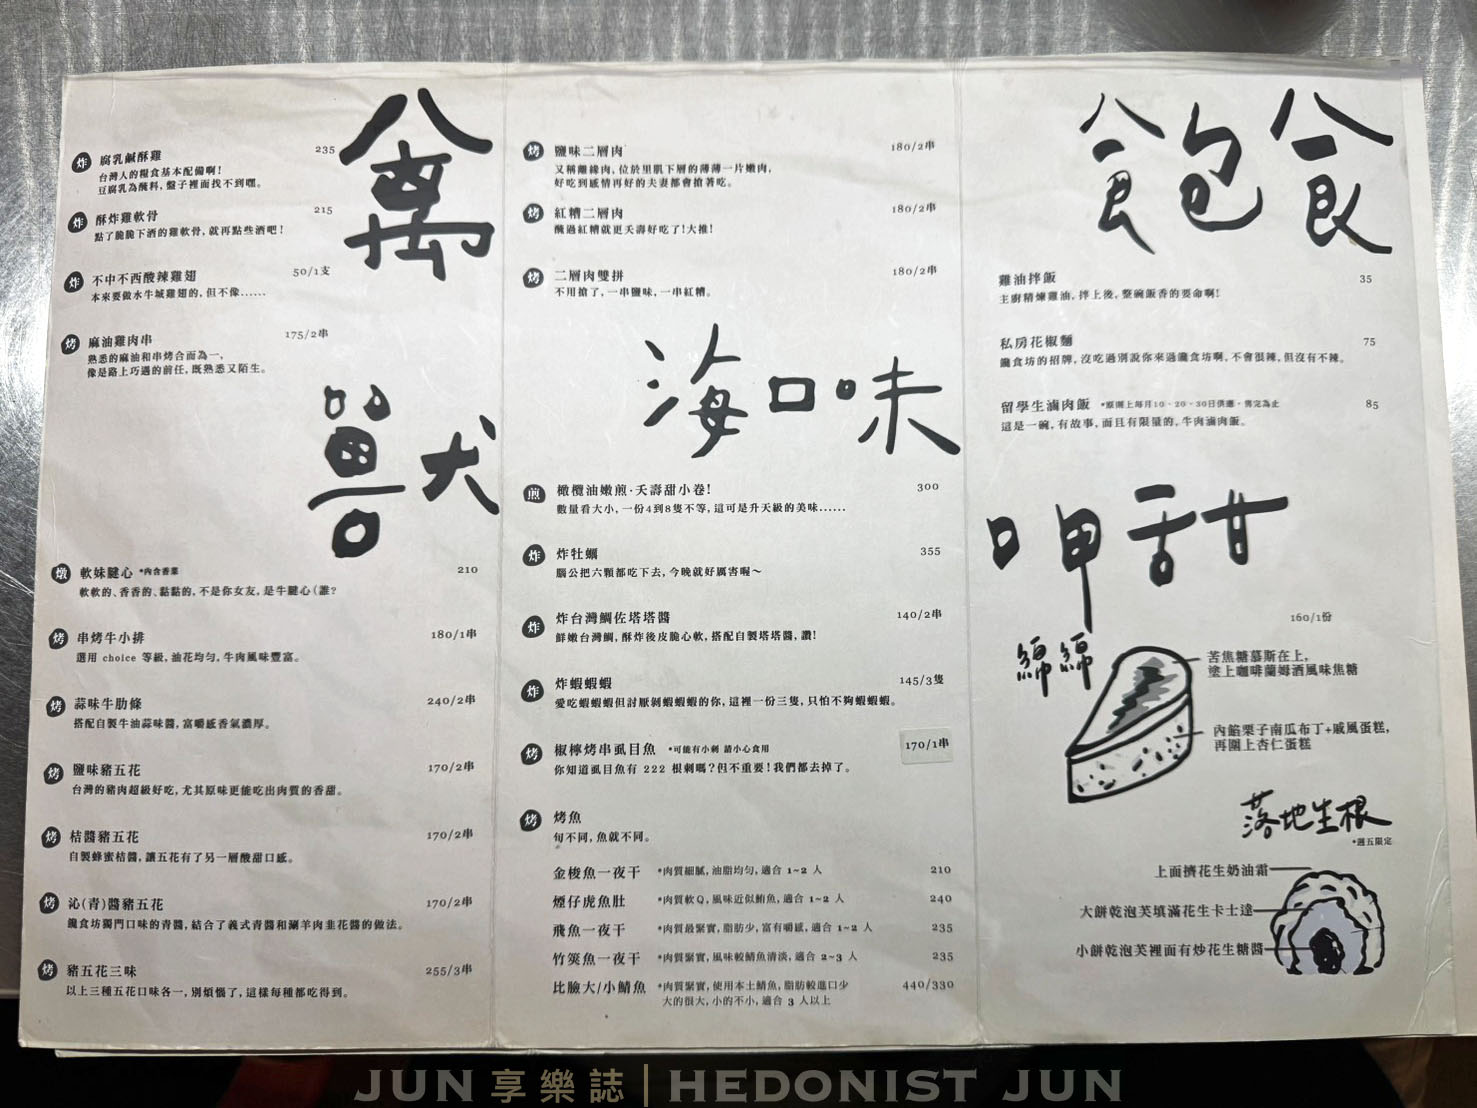 禽
炸 腐乳鹹酥雞 235
台灣人的糧食基本配備啊!
豆腐乳為醃料,盤子裡面找不到嘿。
炸 酥炸雞軟骨 215
點了脆脆下酒的雞軟骨,就再點些酒吧!
炸 不中不西酸辣雞翅 50/1支
本來要做水牛城雞翅的,但不像......
烤 麻油雞肉串 175/2串
熟悉的麻油和串烤合而為一,
像是路上巧遇的前任,既熟悉又陌生。
獸
燉 軟妹腱心 *內含香菜 210
軟軟的、香香的、黏黏的,不是你女友,是牛腱心(誰?
烤 串烤牛小排 180/1串
選用 choice 等級,油花均勻,牛肉風味豐富。
烤 蒜味牛肋條 240/2串
搭配自製牛油蒜味醬,富嚼感香氣濃厚。
烤 鹽味豬五花 170/2串
台灣的豬肉超級好吃,尤其原味更能吃出肉質的香甜。
烤 桔醬豬五花 170/2串
自製蜂蜜桔醬,讓五花有了另一層酸甜口感。
烤 沁(青)醬豬五花 170/2串
饞食坊獨門口味的青醬,結合了義式青醬和涮羊肉韭花醬的做法。
烤 豬五花三味 255/3串
以上三種五花口味各一,別煩惱了,這樣每種都吃得到。
烤 鹽味二層肉 180/2串
又稱離緣肉,位於里肌下層的薄薄一片嫩肉,
好吃到感情再好的夫妻都會搶著吃。
烤 紅糟二層肉 180/2串
醃過紅糟就更夭壽好吃了!大推!
烤 二層肉雙拼 180/2串
不用搶了,一串鹽味,一串紅糟。
海口味
煎 橄欖油嫩煎·夭壽甜小卷! 300
數量看大小,一份4到8隻不等,這可是升天級的美味......
炸 炸牡蠣 355
腦公把六顆都吃下去,今晚就好厲害喔~
炸 炸台灣鯛佐塔塔醬 140/2串
鮮嫩台灣鯛,酥炸後皮脆心軟,搭配自製塔塔醬,讚!
炸 炸蝦蝦蝦 145/3隻
愛吃蝦蝦蝦但討厭剝蝦蝦蝦的你,這裡一份三隻,只怕不夠蝦蝦蝦。
烤 椒檸烤串虱目魚 *可能有小刺 請小心食用 170/1串
你知道虱目魚有 222 根刺嗎?但不重要!我們都去掉了。
烤 烤魚
旬不同,魚就不同。
金梭魚一夜干 *肉質細膩,油脂均勻,適合 1~2 人 210
煙仔虎魚肚 *肉質軟Q,風味近似鮪魚,適合 1~2 人 240
飛魚一夜干 *肉質最緊實,脂肪少,富有嚼感,適合 1~2 人 235
竹筴魚一夜干 *肉質緊實,風味較鯖魚清淡,適合 2~3 人 235
比臉大/小鯖魚 *肉質緊實,使用本土鯖魚,脂肪較進口少 440/330
大的很大,小的不小,適合 3 人以上
飽食
雞油拌飯 35
主廚精煉雞油,拌上後,整碗飯香的要命啊!
私房花椒麵 75
饞食坊的招牌,沒吃過別說你來過饞食坊啊,不會很辣,但沒有不辣。
留學生滷肉飯 *原則上每月10、20、30日供應,售完為止 85
這是一碗,有故事,而且有限量的,牛肉滷肉飯。
呷甜
160/1份
綿綿
苦焦糖慕斯在上,
塗上咖啡蘭姆酒風味焦糖
內餡栗子南瓜布丁+戚風蛋糕,
再圍上杏仁蛋糕
落地生根
*週五限定
上面擠花生奶油霜
大餅乾泡芙填滿花生卡士達
小餅乾泡芙裡面有炒花生糖醬
JUN享樂誌|HEDONIST JUN